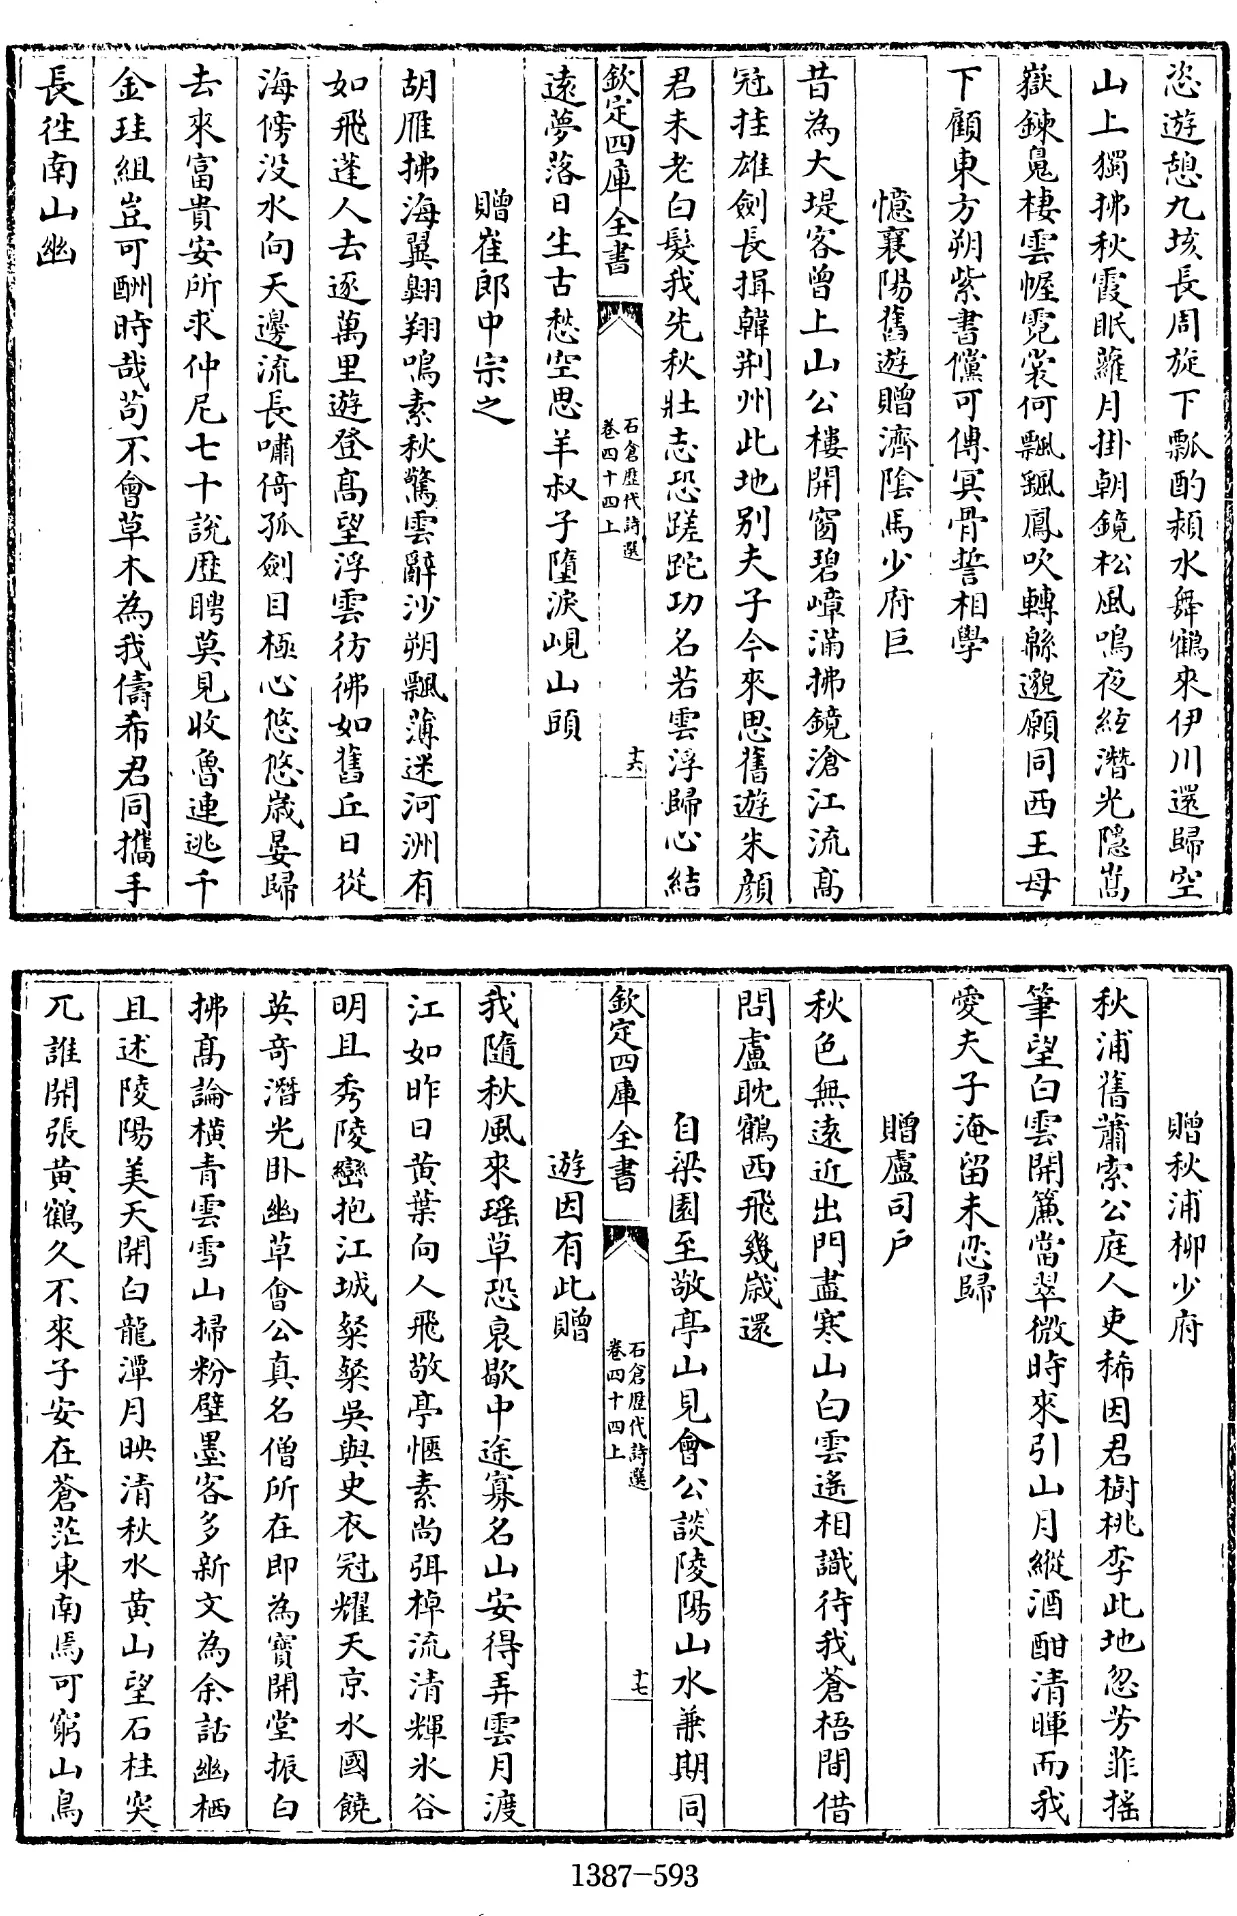 恣遊憩九垓長周旋下瓢酌潁水舞鶴來伊川還歸空
山上獨拂秋霞眠蘿月掛朝鏡松風鳴夜絃潛光隱嵩
嶽鍊鬼棲雲幄霓裳何飄颻鳳吹轉緜邈願同西王母
下顧東方朔紫書儻可傳冥骨誓相學
憶襄陽舊遊贈濟隂馬少府巨
昔為大堤客曾上山公樓開窗碧嶂滿拂鏡滄江流髙
冠挂雄劍長揖韓荆州此地别夫子今來思舊遊朱顔
君未老白髮我先秋壯志恐蹉跎功名若雲浮歸心結
欽定四庫全書
石倉歴代詩選
卷四十四上
十六
遠夢落日生古愁空思羊叔子墮淚峴山頭
贈崔郎中宗之
胡雁拂海翼翺翔鳴素秋驚雲辭沙朔飄薄迷河洲有
如飛蓬人去逐萬里遊登髙望浮雲彷彿如舊丘日從
海傍没水向天邊流長嘯倚孤劍目極心悠悠歲晏歸
去來富貴安所求仲尼七十說歴聘莫見收魯連逃千
金珪組豈可酬時哉苟不會草木為我儔希君同攜手
長往南山幽
贈秋浦柳少府
秋浦舊蕭索公庭人吏稀因君樹桃李此地忽芳菲揺
筆望白雲開簾當翠微時來引山月縱酒酣清暉而我
愛夫子淹留未忍歸
贈盧司户
秋色無逺近出門盡寒山白雲遙相識待我蒼梧間借
問盧耽鶴西飛幾歲還
自梁園至敬亭山見會公談陵陽山水兼期同
欽定四庫全書
石倉歴代詩選
卷四十四上
十七
遊因有此贈
我隨秋風來瑶草恐衰歇中途寡名山安得弄雲月渡
江如昨日黄葉向人飛敬亭愜素尚弭棹流清輝氷谷
明且秀陵巒抱江城粲粲吳與史衣冠耀天京水國饒
英奇潛光卧幽草會公真名僧所在即為寳開堂振白
拂髙論横青雲雪山掃粉壁墨客多新文為余話幽栖
且述陵陽美天開白龍潭月映清秋水黄山望石柱突
兀誰開張黄鶴久不來子安在蒼茫東南焉可窮山鳥
1387-593